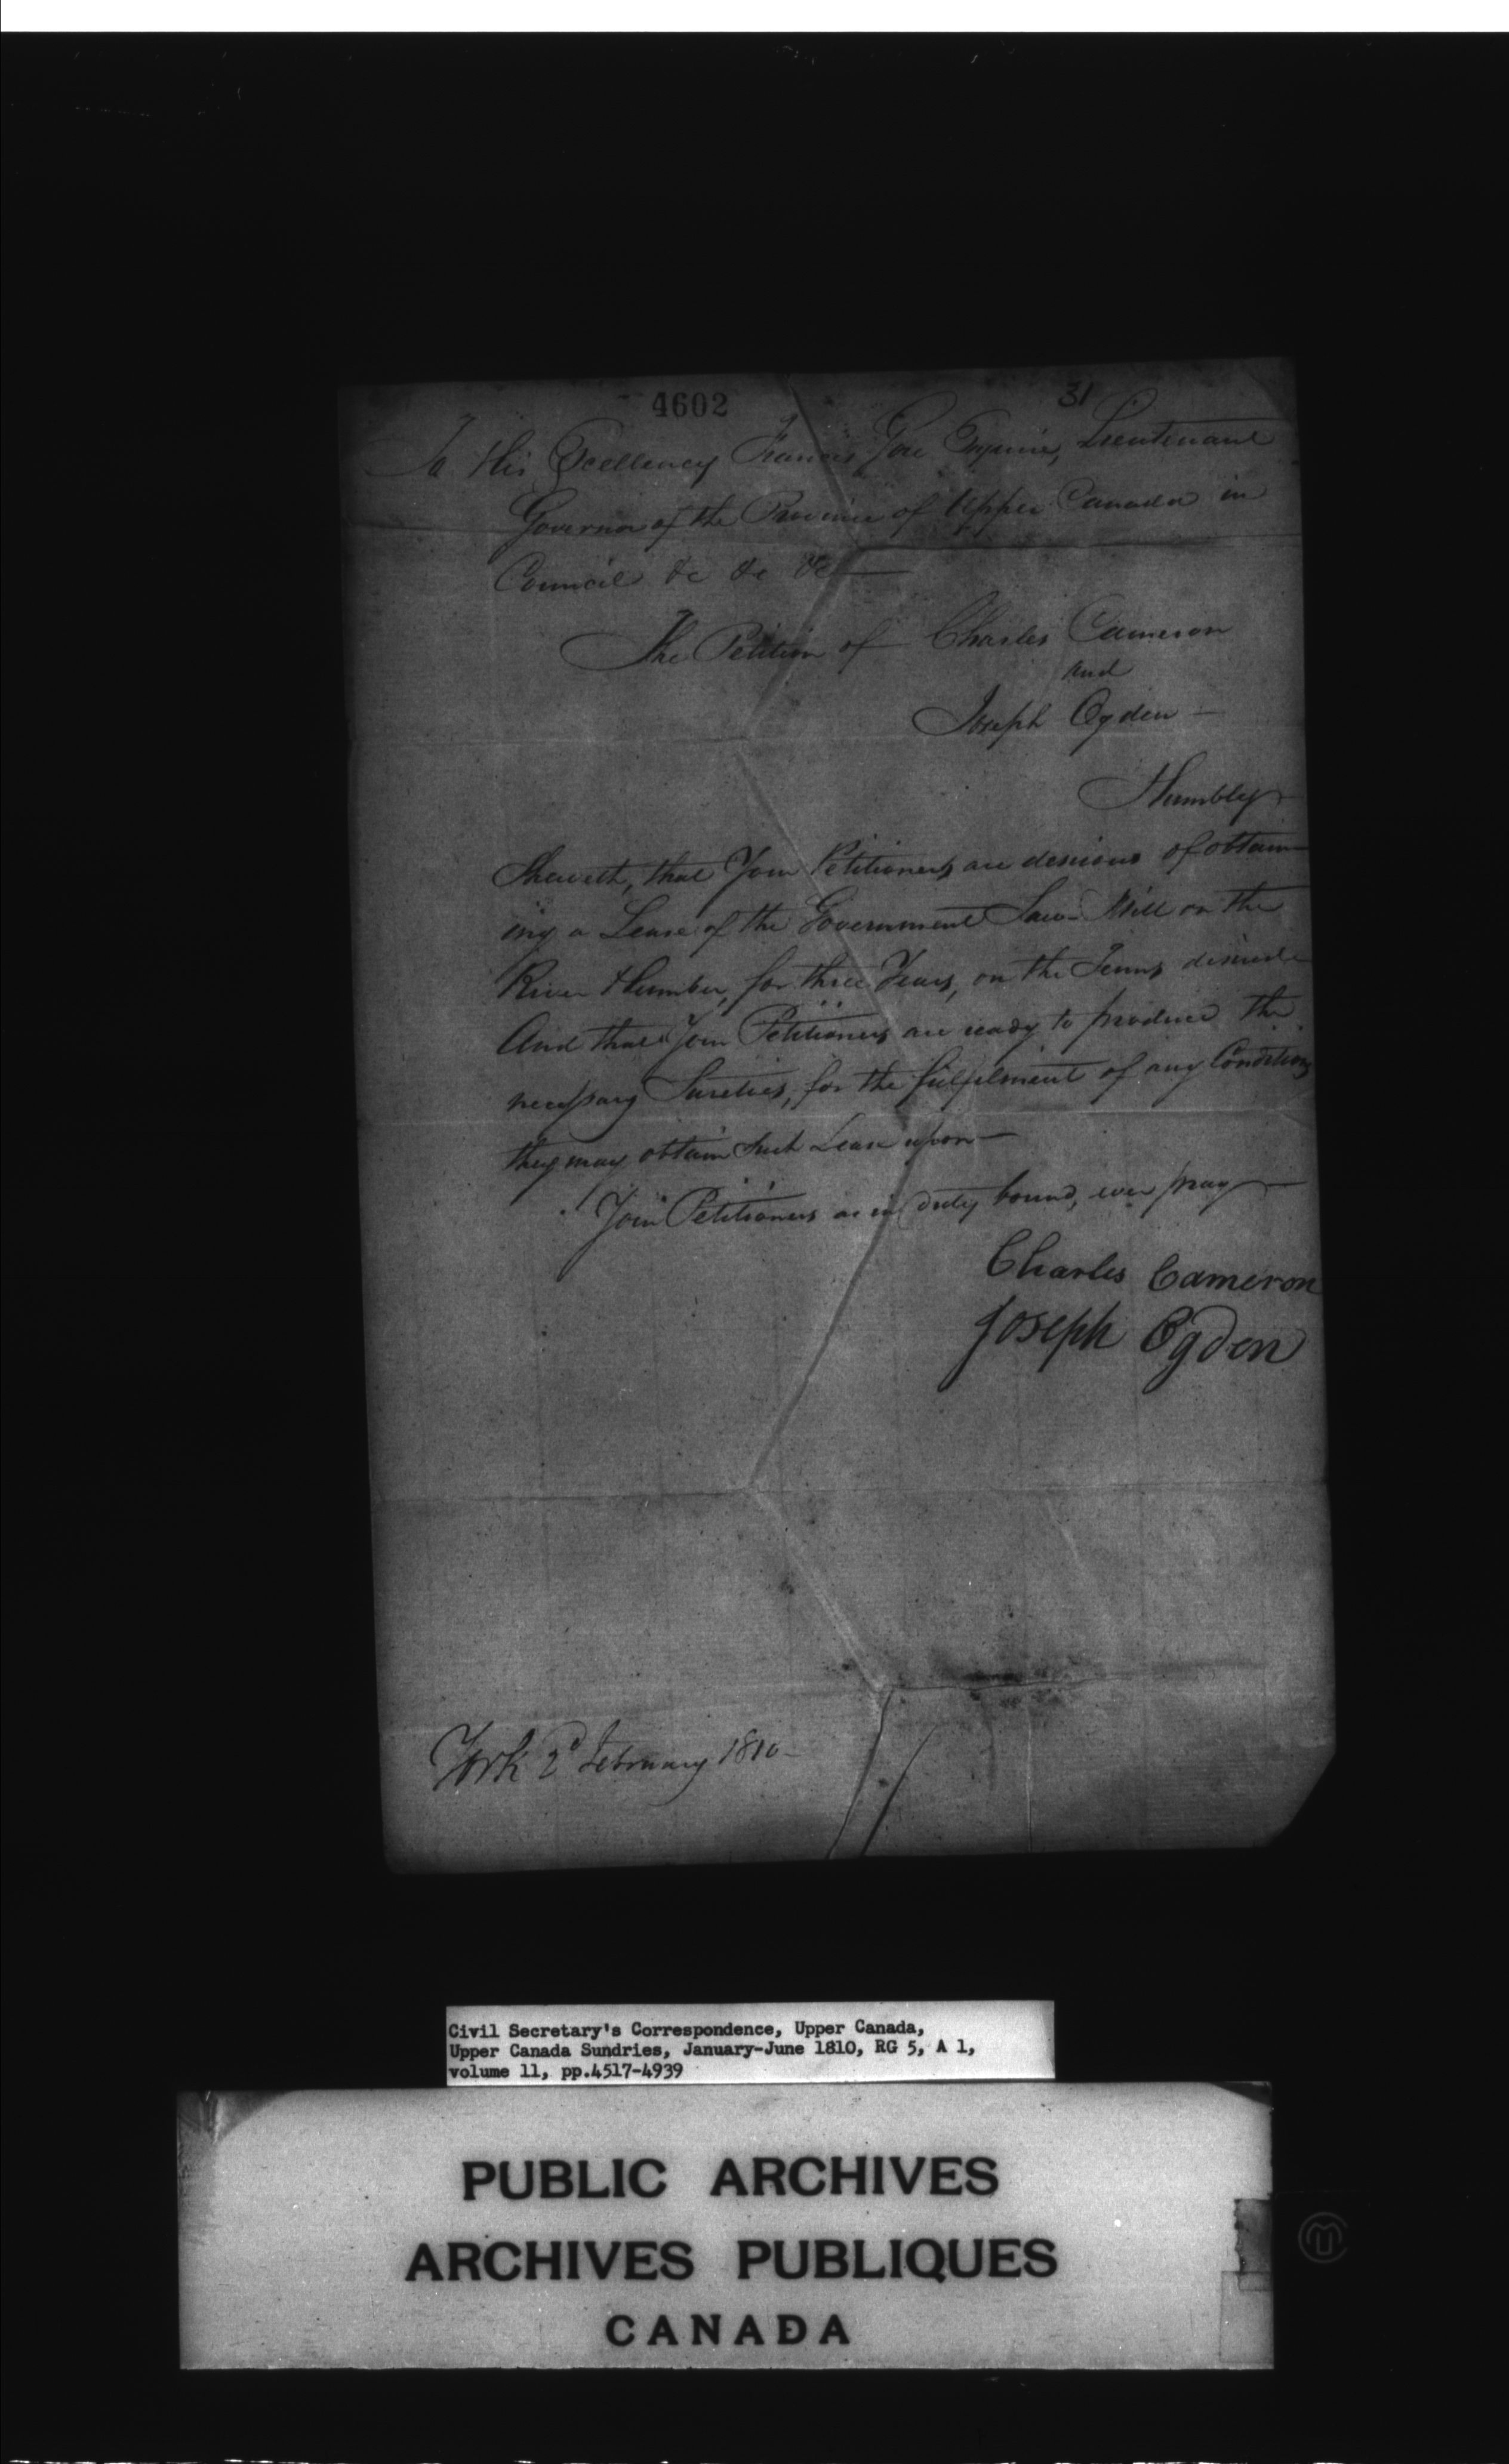 4602
31
To His Excellency Francis Gore Esquire, Lieutenant
Governor of the Province of Upper Canada in
Council &c &c &c —
The Petition of Charles Cameron
and
Joseph Ogden —
Humbly
Sheweth, that Your Petitioners are desirous of obtain-
ing a Lease of the Government Saw-Mill on the
River Humber, for three Years, on the Terms desired
And that Your Petitioners are ready to produce the
necessary Sureties, for the fulfilment of any Conditions
they may obtain Such Lease upon —
Your Petitioners as in duty bound, ever pray —
Charles Cameron
Joseph Ogden
York 2d February 1810 -
Civil Secretary's Correspondence, Upper Canada,
Upper Canada Sundries, January-June 1810, RG 5, A 1,
volume 11, pp.4517-4939
PUBLIC ARCHIVES
ARCHIVES PUBLIQUES
CANADA